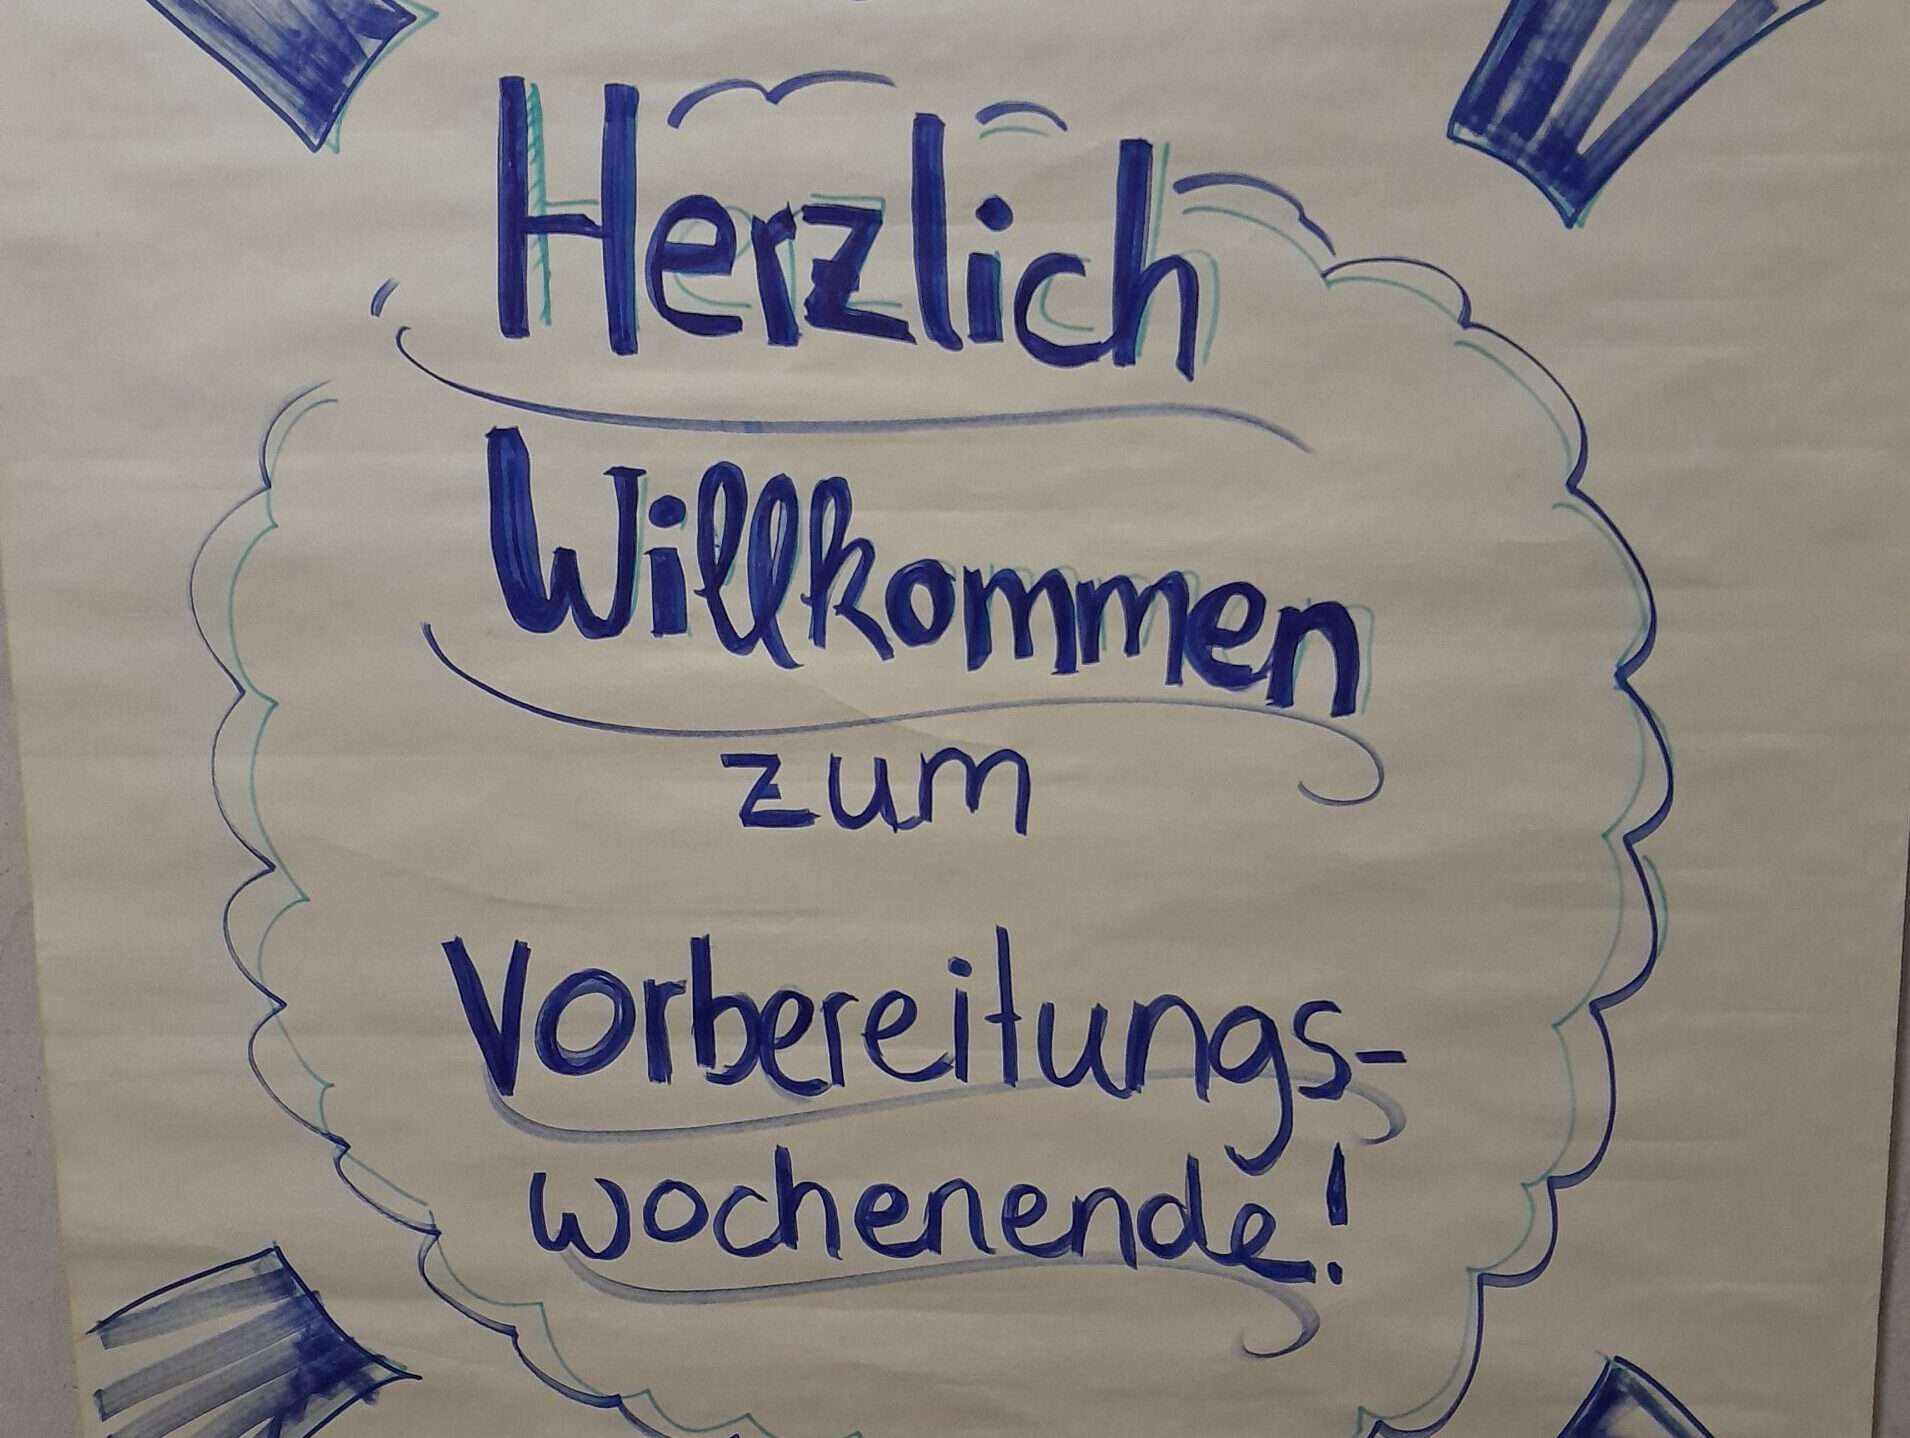 Herzlich
Willkommen
zum
Vorbereitungs-
wochenende!